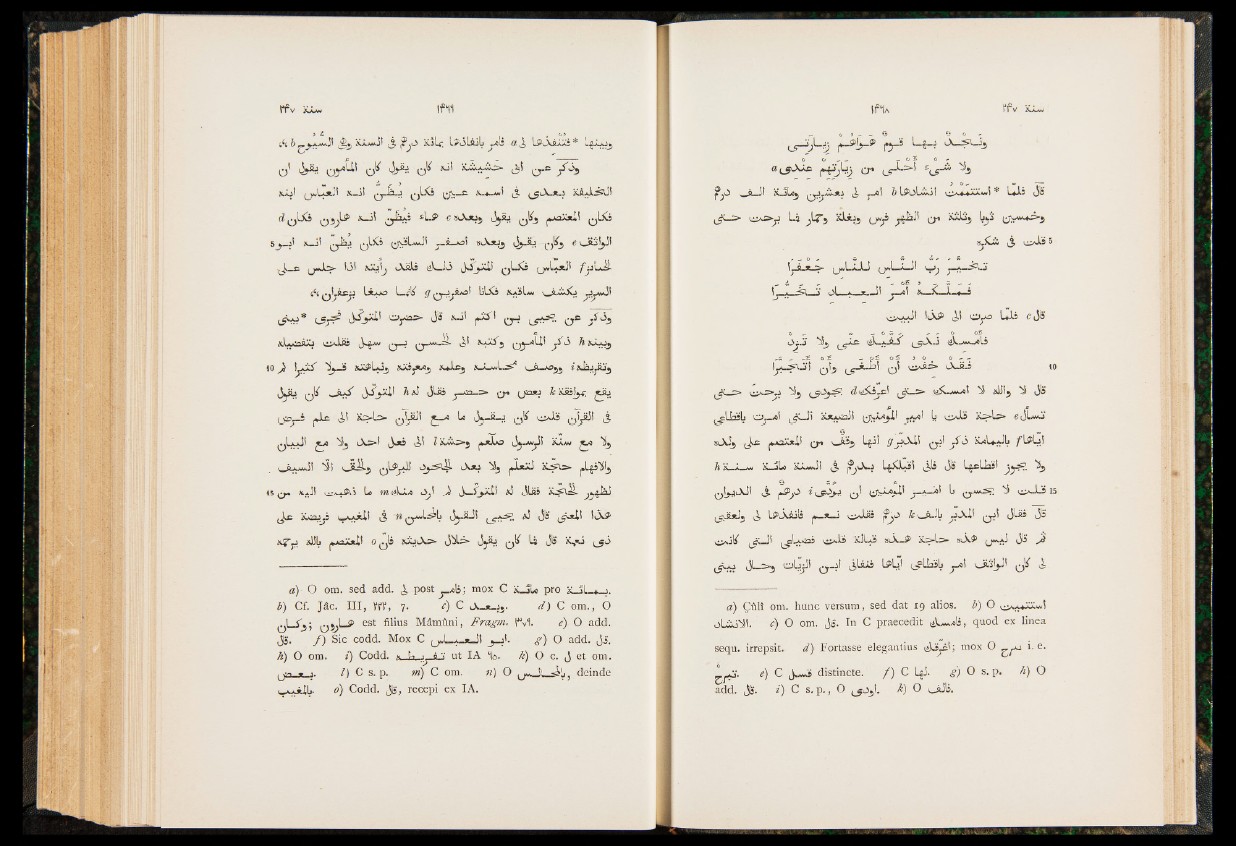 سنة ٢٤٧ ١٣٦٨
وَنَجْدٌ بِهَا قَوْمٌ هَوَاهُمْ زِيَارَتِى
ولا شَىْءَ أَحْلَى من زِيَارَتِهِمْ عِنْدِى a
قال فلمّا *استتممتُ انشادها b امر لى بعشرين ومائة الف درهم
وخمسين ثوبا وثلثة من الظهر فرس وبغلة وحمار فما برحت حتى
5 قلت فى شكره
تَخَيَّرَ رَبُّ النَّاسِ لِلنَّاسِ جَعْفَرَا
فَمَلَّكَهُ أَمْرَ العِبَادِ تَخَيُّرَا
قال c فلمّا صرت الى هذا البيت
فأَمْسِكْ نَدَى كَفَّيْكَ عنّى ولا تَزِدْ
10 فَقَدْ خِفْتُ أَنْ أَطْغَى وأَنْ أَتَجَبَّرَا
قال لا والله لا امسك حتى اغرقك d بجودى ولا برحتَ حتى
تسأل e حاجة قلت يا امير المؤمنين الضيعة التى امرت باقطاعى
ايّاها f باليمامة ذكر ابن المدبّر g انها وقْف من المعتصم على ولده
ولا يجوز اقطاعها قال فانى اقبّلكها بدرهم فى السنة مائة سنة h
15 قلت لا يحسن يا امير المؤمنين ان يؤدّى i درهم فى الديوان
قال فقال ابن المدبّر بالف k درهم فقلت نعم فانفذها لى ولعقبى
ثم قال ليس هذه حاجة هذه قبالة قلت فضياعى التى كانت
لى كان الواثق امر باقطاعى ايّاها فنفانى ابن الزيّات وحال بينى
a) Çûlî om. hunc versum, sed dat 19 alios. b) O استتميت
الانشاد. c) O om. قال. In C praecedit فامسك, quod ex linea
sequ. irrepsit. d) Fortasse elegantius اغرّقك; mox O نبرح i. e.
نبرح. e) C فسل distincte. f) C لها. g) O s. p. h) O
add. قال. i) C s. p., O اودى. k) O فالف.
١٣٦٩ سنة ٢٤٧
وبينها *فتُنَفّذها لى a فامر بانفاذها بمائة درهم فى السنة وهى السُّيُوح b
وذُكر عن ابى حَشيشة انه كان يقول كان المأمون يقول ان
الخليفة بعدى فى اسمه عين فكان يُظَنّ انه العبّاس ابنه
فكان المعتصم وكان يقول وبعده c هاء فيُظَنّ انه هارون فكان d
5 الواثق e وكان يقول وبعده اصفر الساقين فكان يُظَنّ انه ابو
الحائز f العبّاس فكان المتوكّل ذلك فلقد رأيته اذا جلس على
السرير يكشف ساقيه فكانا اصفرين g كانّما صبغا بزعفران
وذُكر عن يحيى بن اكثم انه قال حضرت المتوكّل فجرى *بينى
وبينه h ذكر المأمون وكتبه الى الحسن بن سهل فقلت بتفضيله
10 وتقريظه i ووصف محاسنه وعلمه ومعرفته ونباهته قولا كثيرا لم
يقع بموافقة k بعض من حضر فقال له h المتوكّل كيف كان يقول
فى القرآن قلت كان يقول ما مع القرآن حاجة الى علم فرض
ولا مع سنّة الرسول صلعم وحشة l الى فعل احد ولا مع البيان
والافهام حجّة لتعلّم ولا بعد الجحود للبرهان والحقّ الّا السيف
15 لظهور الحجّة فقال له المتوكّل لم ارد منك m ما ذهبت اليه من
هذا المعنى قال له يحيى القول بالمحاسن n فى المغيب فريضة على
ذى نعمة قال فما كان يقول خلال حديثه فانّ o المعتصم بالله يرحمه
a) O om. sed add. لى post فامر; mox C مائة pro بمائة.
b) Cf. Jâc. III, ٢٢٢, 7. c) C وبعد. d) C om., O
وكان; هارون est filius Mâmûni, Fragm. ٣٧٩. e) O add.
قال. f) Sic codd. Mox C ابو العباس. g) O add. قال.
h) O om. i) Codd. تفريطه ut IA ٦٥. k) O c. ل et om.
بعض. l) C s. p. m) C om. n) O بالمجالس, deinde
بالمغيب. o) Codd. قال, recepi ex IA.